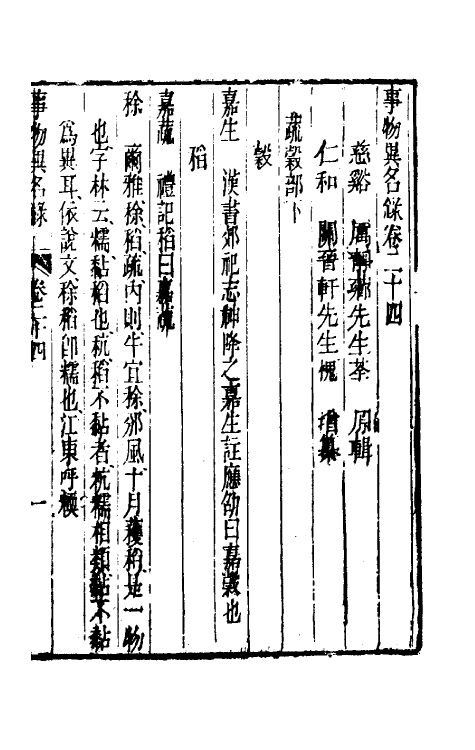 事物異名錄卷二十四
慈谿 厲荃先生荃 原輯
仁和 關晉軒先生槐 增纂
蔬穀部下
穀
嘉生 漢書郊祀志神降之嘉生註應劭曰嘉穀也
稻
嘉蔬 禮記稻曰嘉蔬
稌 爾雅稌稻疏內則牛宜稌邠風十月穫稻是一物
也字林云糯黏稻也秔稻不黏者秔糯相類黏不黏
為異耳依說文稌稻卽糯也江東呼稬
事物異名錄 卷二十四 一